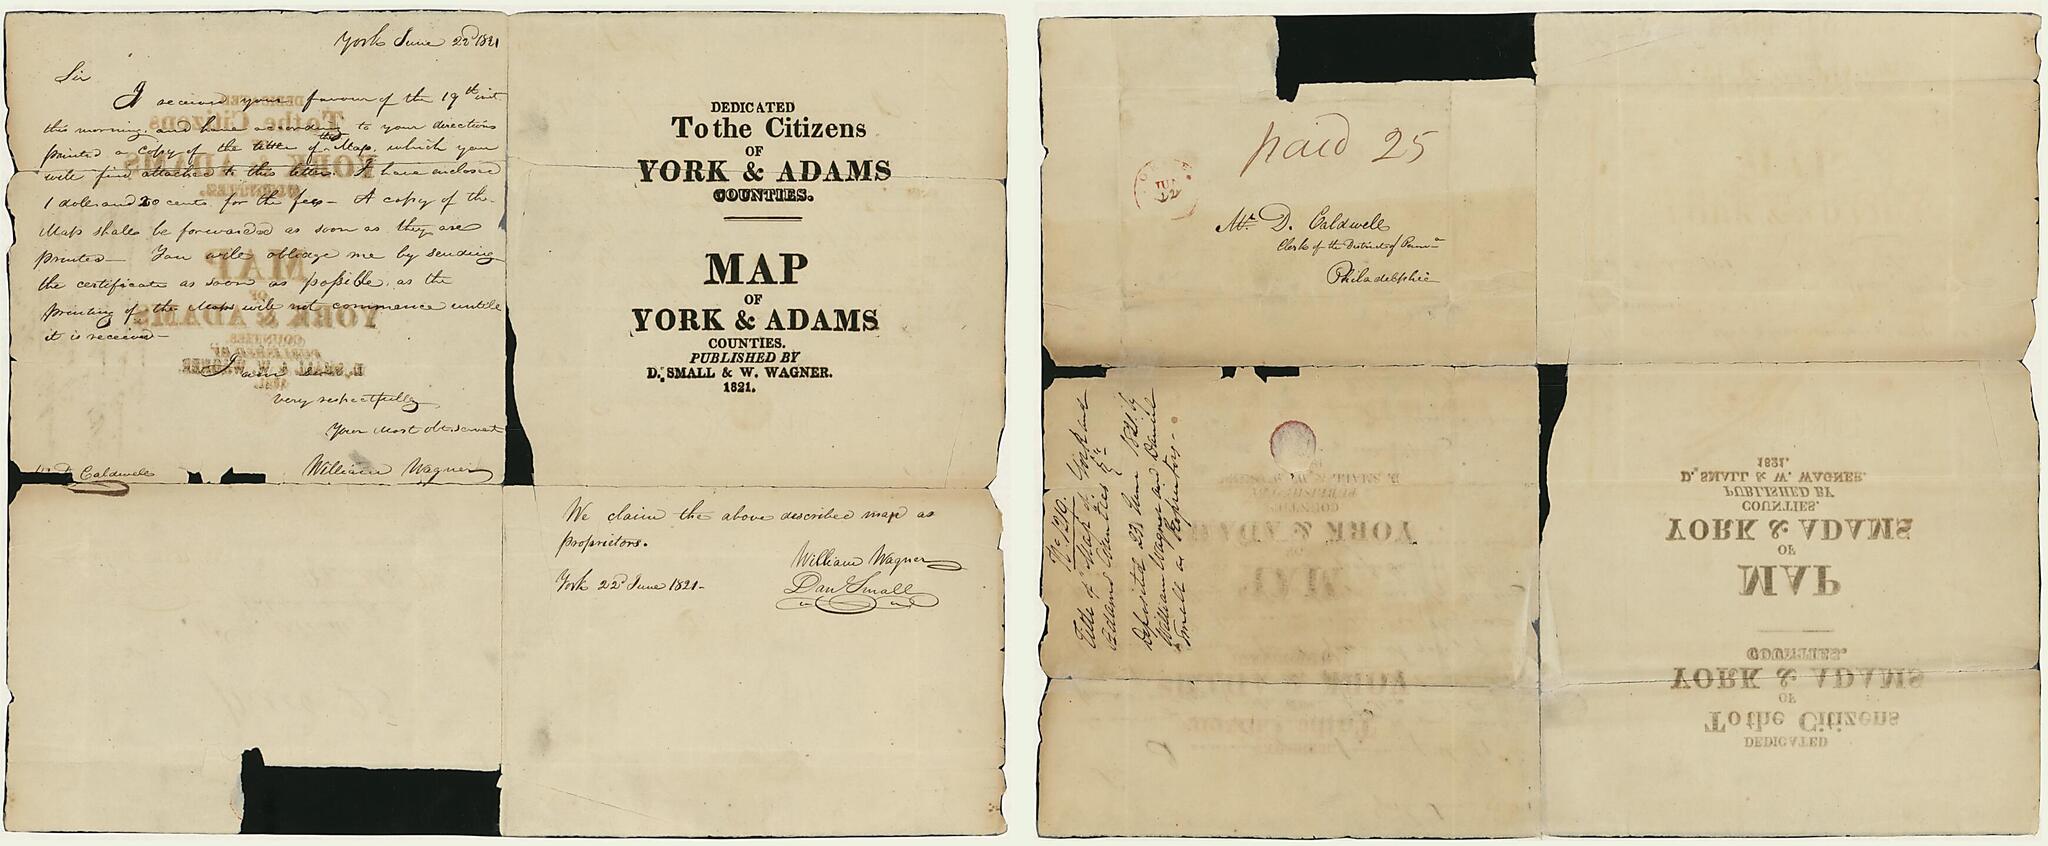 York June 22d 1821
Sir
I received your favour of the 19th inst
this morning, and have according to your directions
printed a copy of the titter of the Map, which you
will find attached to this letter. I have enclosed
1 doller and 20 cents for the fees - A copy of the
Map shall be forwarded as soon as they are
printed - You will obledge me by sending
the certificate as soon as possible, as the
printing of the Maps will not commence untill
it is received -
I am Sir
very respectfully
Your Most Ob. Servant
William Wagner
D Caldwell
DEDICATED
To the Citizens
OF
YORK & ADAMS
COUNTIES.
MAP
OF
YORK & ADAMS
COUNTIES.
PUBLISHED BY
D. SMALL & W. WAGNER.
1821.
We claim the above described map as
proprietors.
William Wagner
York 22d June 1821-
Danl Small
paid 25
JUN
22
Mr. D. Caldwell
Clerk of the District of Penna
Philadelphia
No 1210.
Title of "Map of York and
Adams Counties &c"
Deposited 23 June 1821 by
William Wagner and Daniel
Small as Proprietors -